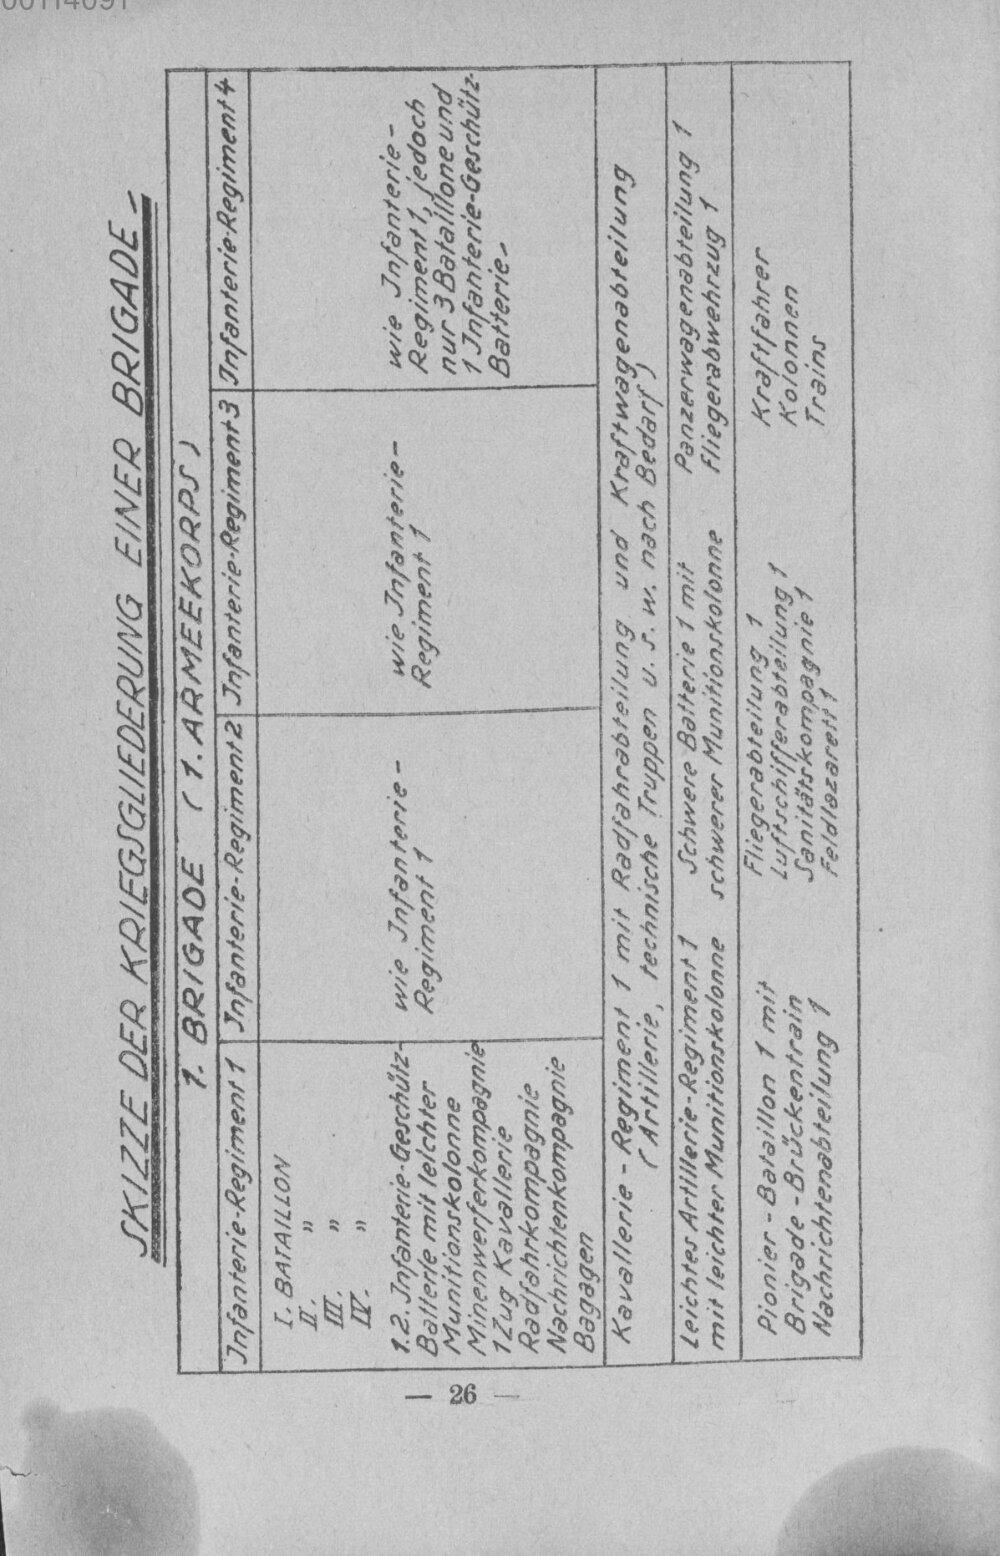 SKIZZE DER KRIEGSGLIEDERUNG EINER BRIGADE-
1. BRIGADE (1. ARMEEKORPS)
Jnfanterie-Regiment 1
Jnfanterie-Regiment 2
Jnfanterie-Regiment 3
Jnfanterie-Regiment 4
I. BATAILLON
II. „
III. „
IV. „
1.2. Jnfanterie-Geschütz-
Batterie mit leichter
Munitionskolonne
Minenwerferkompagnie
1 Zug Kavallerie
Radfahrkompagnie
Nachrichtenkompagnie
Bagagen
wie Jnfanterie-
Regiment 1
wie Jnfanterie-
Regiment 1
wie Jnfanterie-
Regiment 1, jedoch
nur 3 Bataillone und
1 Jnfanterie-Geschütz-
Batterie-
Kavallerie-Regiment 1 mit Radfahrabteilung und Kraftwagenabteilung
(Artillerie, technische Truppen u. s. w. nach Bedarf)
Leichtes Artillerie-Regiment 1
mit leichter Munitionskolonne
Schwere Batterie 1 mit
schwerer Munitionskolonne
Panzerwagenabteilung 1
Fliegerabwehrzug 1
Pionier-Bataillon 1 mit
Brigade-Brückentrain
Nachrichtenabteilung 1
Fliegerabteilung 1
Luftschifferabteilung 1
Sanitätskompagnie 1
Feldlazarett 1
Kraftfahrer
Kolonnen
Trains
— 26 —